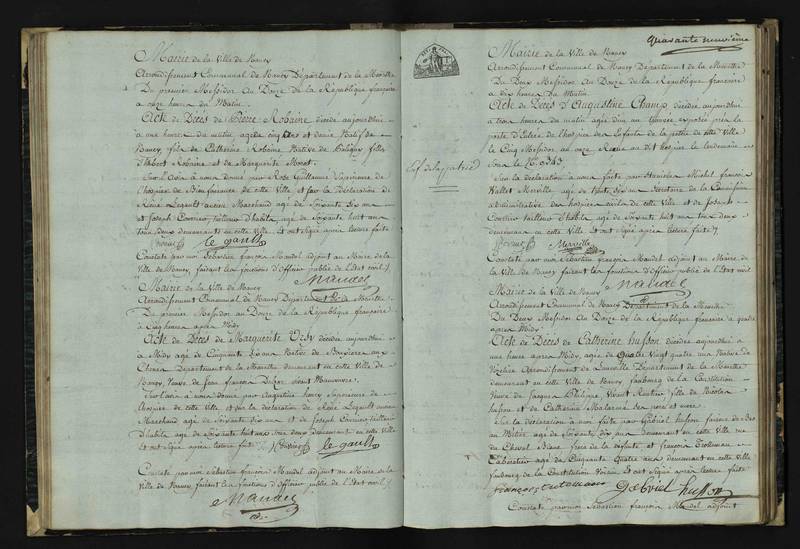 Mairie de la Ville de Nancy
Arrondissement Communal de Nancy Département de la Meurthe
Du premier Messidor au Douze de la République française
à onze heures du Matin
Acte de Décès de Pierre Robaine décédé aujourd'hui
à une heure du matin agé de cinq ans et demie Natif de
Nancy fils de Catherine Robaine Native de fille
Robaine et de Marguerite
Sur l'avis à nous donné par Rose Guillaume Supérieure de
l'hospice de Bienfaisance de cette Ville et sur la Déclaration de
René Legault ancien Marchand agé de Soixante dix ans
et Joseph Couvrier tailleur d'habits, agé de Soixante huit ans
tous deux demeurants en cette Ville et ont Signé après lecture faite
le gault
Constaté par moi Sébastien françois Mandel adjoint au Maire de la
Ville de Nancy, faisant les fonctions d'Officier public de l'état civil
Mandel
Mairie de la Ville de Nancy
Arrondissement Communal de Nancy Département de la Meurthe
Du premier Messidor au Douze de la République française
à Cinq heures après Midy
Acte de Décès de Marguerite décédée aujourd'hui
à Midy agé de Cinquante dix ans Native de aux
Département de la Meurthe demeurant en cette Ville de
Nancy, Veuve de Jean françois
Sur l'avis à nous donné par Augustine Supérieure de
l'hospice de cette Ville et sur la déclaration de René Legault ancien
Marchand agé de Soixante dix ans et de Joseph Couvrier tailleur
d'habits agé de Soixante huit ans tous deux demeurants en cette Ville
et ont Signé après lecture faite
le gault
Constaté par moi Sébastien françois Mandel adjoint au Maire de la
Ville de Nancy, faisant les fonctions d'Officier public de l'état civil
Mandel
Quarante neuvième
Mairie de la Ville de Nancy
Arrondissement Communal de Nancy Département de la Meurthe
Du Deux Messidor au Douze de la République française
à dix heures du Matin
Enf. de la patrie
Acte de Décès d'Augustine Champ, décédée aujourd'hui
à trois heures du matin agée d'un an trouvée exposée près la
porte d'Entrée de l'hospice des Enfants de la patrie de cette Ville
le Cinq Messidor au onze Reçue au dit hospice le lendemain
Sous le N°
Sur la déclaration à nous faite par Stanislas Michel françois
Vallet Merville agé de ans Secrétaire de la Commission
administrative des hospices civils de cette Ville et de Joseph
Couvrier tailleur d'habits agé de Soixante huit ans tous deux
demeurant en cette Ville et ont Signé après lecture faite
Merville
Constaté par moi Sébastien françois Mandel adjoint au Maire de
la Ville de Nancy faisant les fonctions d'Officier public de l'état civil
Mandel
Mairie de la Ville de Nancy
Arrondissement Communal de Nancy Département de la Meurthe
Du Deux Messidor au Douze de la République française à quatre
après Midy
Acte de Décès de Catherine husson décédée aujourd'hui à
une heure après Midy, agée de Quatre Vingt quatre ans Native de
Arrondissement de Lunéville Département de la Meurthe
demeurant en cette Ville de Nancy faubourg de la Constitution
Veuve de Jacques Philippe, Vivant Rentier, fille de Nicolas
husson et de Catherine ses père et mère
Sur la déclaration à nous faite par Gabriel husson
au Métier agé de Soixante dix ans demeurant en cette Ville rue
du Cheval Blanc frère de la défunte et françois
Cabaretier agé de Cinquante Quatre ans demeurant en cette Ville
faubourg de la Constitution Voisin Et ont Signé après lecture faite
Gabriel husson
Constaté par moi Sébastien françois Mandel adjoint